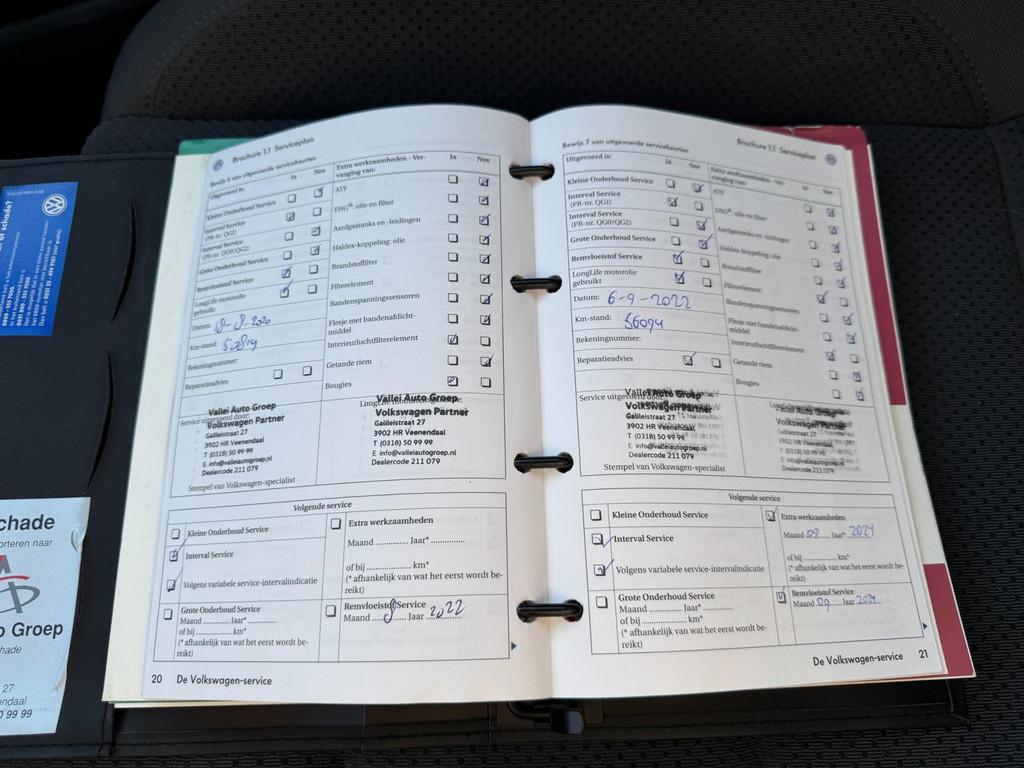 Brochure 1.1 Serviceplan
Bewijs 6 van uitgevoerde servicebeurten
Uitgevoerd is:
Ja
Nee
Kleine Onderhoud Service
Interval Service
(PR-nr. QG1)
Interval Service
(PR-nr. QG0/QG2)
Grote Onderhoud Service
Remvloeistof Service
LongLife motorolie
gebruikt
Datum: 8-8-2020
Km-stand:
Rekeningnummer:
Reparatieadvies
Extra werkzaamheden - Ver-
vanging van:
Ja
Nee
ATF
DSG®: olie en filter
Aardgastanks en -leidingen
Haldex-koppeling: olie
Brandstoffilter
Filterelement
Bandenspanningssensoren
Flesje met bandenafdicht-
middel
Interieurluchtfilterelement
Getande riem
Bougies
Service uitgevoerd door:
Vallei Auto Groep
Volkswagen Partner
Galileistraat 27
3902 HR Veenendaal
T (0318) 50 99 99
E info@valleiautogroep.nl
Dealercode 211 079
Stempel van Volkswagen-specialist
Vallei Auto Groep
Volkswagen Partner
Galileistraat 27
3902 HR Veenendaal
T (0318) 50 99 99
E info@valleiautogroep.nl
Dealercode 211 079
Volgende service
Kleine Onderhoud Service
Interval Service
Volgens variabele service-intervalindicatie
Grote Onderhoud Service
Maand ............ Jaar* ............
of bij ............ km*
(* afhankelijk van wat het eerst wordt be-
reikt)
Extra werkzaamheden
Maand ............ Jaar* ............
of bij ............ km*
(* afhankelijk van wat het eerst wordt be-
reikt)
Remvloeistof Service
Maand 8 Jaar 2022
20 De Volkswagen-service
Bewijs 7 van uitgevoerde servicebeurten
Brochure 1.1 Serviceplan
Uitgevoerd is:
Ja
Nee
Kleine Onderhoud Service
Interval Service
(PR-nr. QG1)
Interval Service
(PR-nr. QG0/QG2)
Grote Onderhoud Service
Remvloeistof Service
LongLife motorolie
gebruikt
Datum: 6-9-2022
Km-stand: 56094
Rekeningnummer:
Reparatieadvies
Extra werkzaamheden - Ver-
vanging van:
Ja
Nee
ATF
DSG®: olie en filter
Aardgastanks en -leidingen
Haldex-koppeling: olie
Brandstoffilter
Filterelement
Bandenspanningssensoren
Flesje met bandenafdicht-
middel
Interieurluchtfilterelement
Getande riem
Bougies
Service uitgevoerd door:
Vallei Auto Groep
Volkswagen Partner
Galileistraat 27
3902 HR Veenendaal
T (0318) 50 99 99
E info@valleiautogroep.nl
Dealercode 211 079
Stempel van Volkswagen-specialist
Vallei Auto Groep
Volkswagen Partner
Galileistraat 27
3902 HR Veenendaal
T (0318) 50 99 99
E info@valleiautogroep.nl
Dealercode 211 079
Volgende service
Kleine Onderhoud Service
Interval Service
Volgens variabele service-intervalindicatie
Grote Onderhoud Service
Maand ............ Jaar* ............
of bij ............ km*
(* afhankelijk van wat het eerst wordt be-
reikt)
Extra werkzaamheden
Maand 09 Jaar* 2024
of bij ............ km*
(* afhankelijk van wat het eerst wordt be-
reikt)
Remvloeistof Service
Maand 09 Jaar 2024
De Volkswagen-service 21
schade?
chade
orteren naar
o Groep
hade
27
endaal
0 99 99